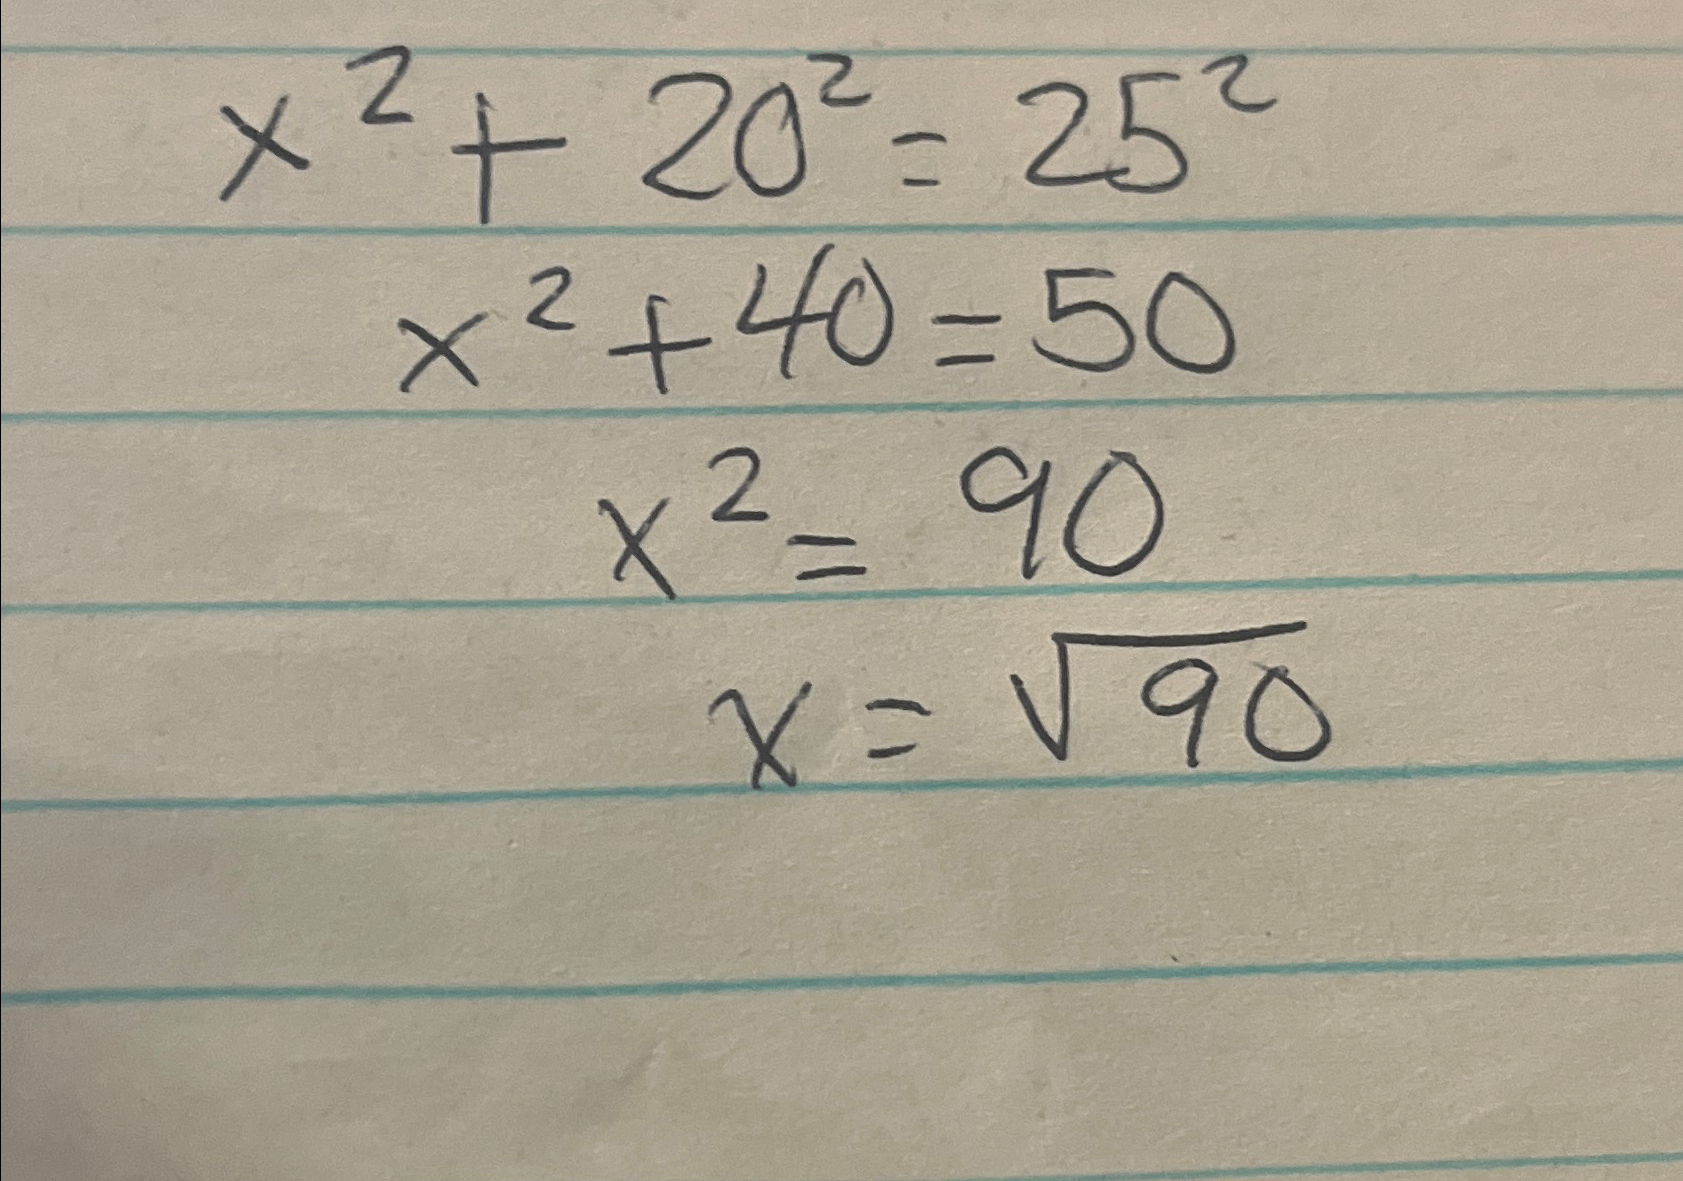 x² + 20² = 25²
x² + 40 = 50
x² = 90
x = √90